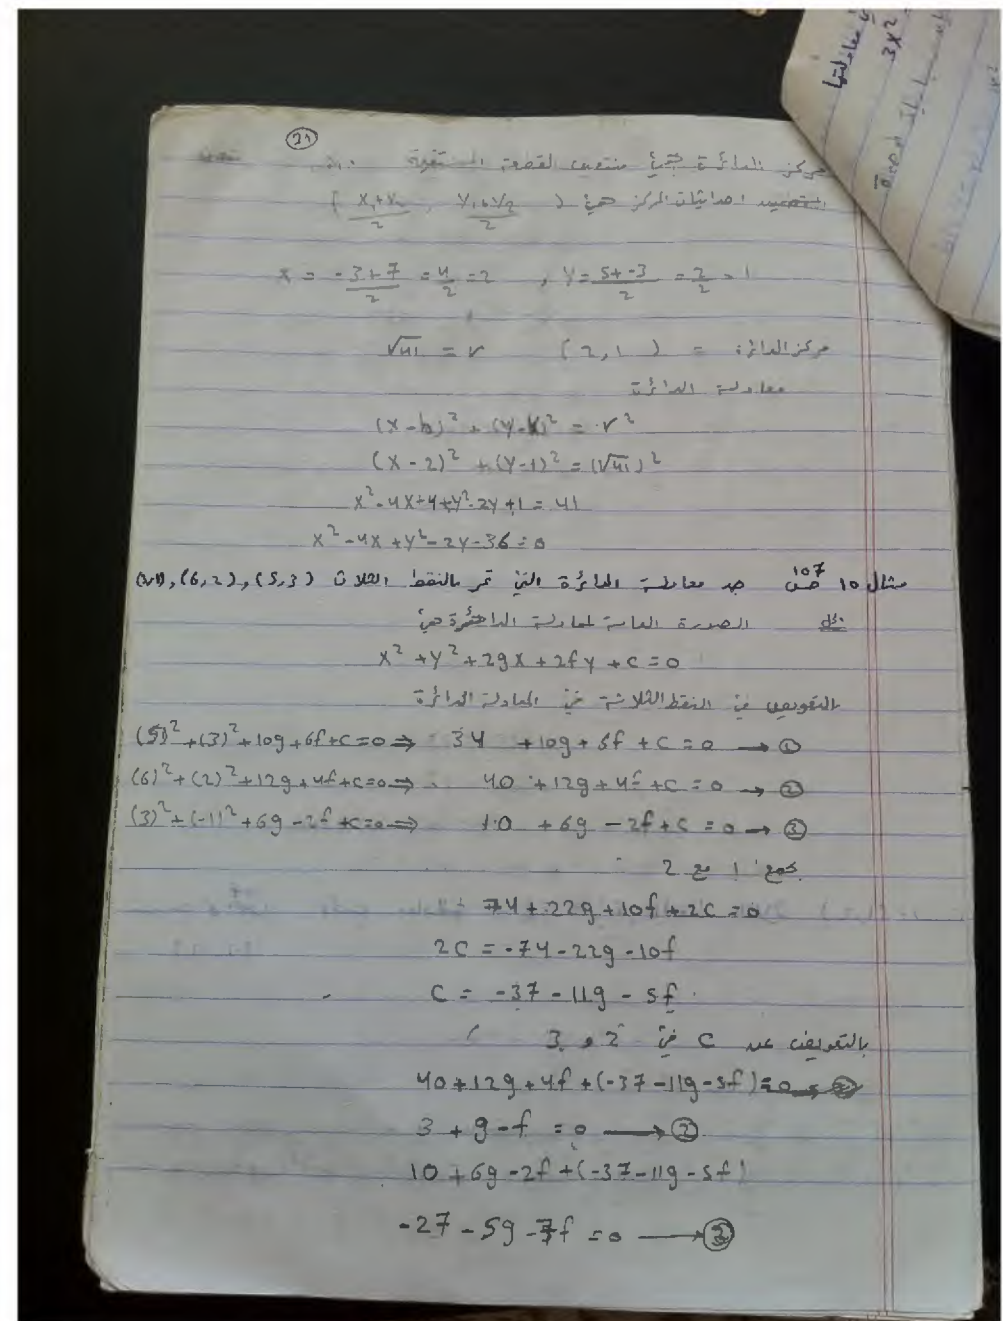 21
مركز الدائرة هي منتصف القطعة المستقيمة
احداثيات المركز هي ( x₁+x₂/2 , y₁+y₂/2 )
x = -3+7/2 = 4/2 = 2 , y = 5+-3/2 = 2/2 = 1
مركز الدائرة = (2,1) √41 = r
معادلة الدائرة
(x-h)² + (y-k)² = r²
(x-2)² + (y-1)² = (√41)²
x²-4x+4+y²-2y+1=41
x²-4x+y²-2y-36=0
مثال 10 ص 107 جد معادلة الدائرة التي تمر بالنقط الثلاث (5,3), (6,2),
الحل الصورة العامة لمعادلة الدائرة هي
x²+y²+2gx+2fy+c=0
بالتعويض في النقط الثلاثة في المعادلة الدائرة
(5)²+(3)²+10g+6f+c=0 ⇒ 34 +10g+6f+c=0 → ①
(6)²+(2)²+12g+4f+c=0 ⇒ 40 +12g+4f+c=0 → ②
(3)²+(-1)²+6g-2f+c=0 ⇒ 10 +6g-2f+c=0 → ③
بجمع 1 مع 2
74+22g+10f+2c=0
2c=-74-22g-10f
c=-37-11g-5f
بالتعويض عن c في 2 و 3
40+12g+4f+(-37-11g-5f)=0
3+g-f=0 → ②
10+6g-2f+(-37-11g-5f)
-27-5g-7f=0 → ③
معادلتها
3x²